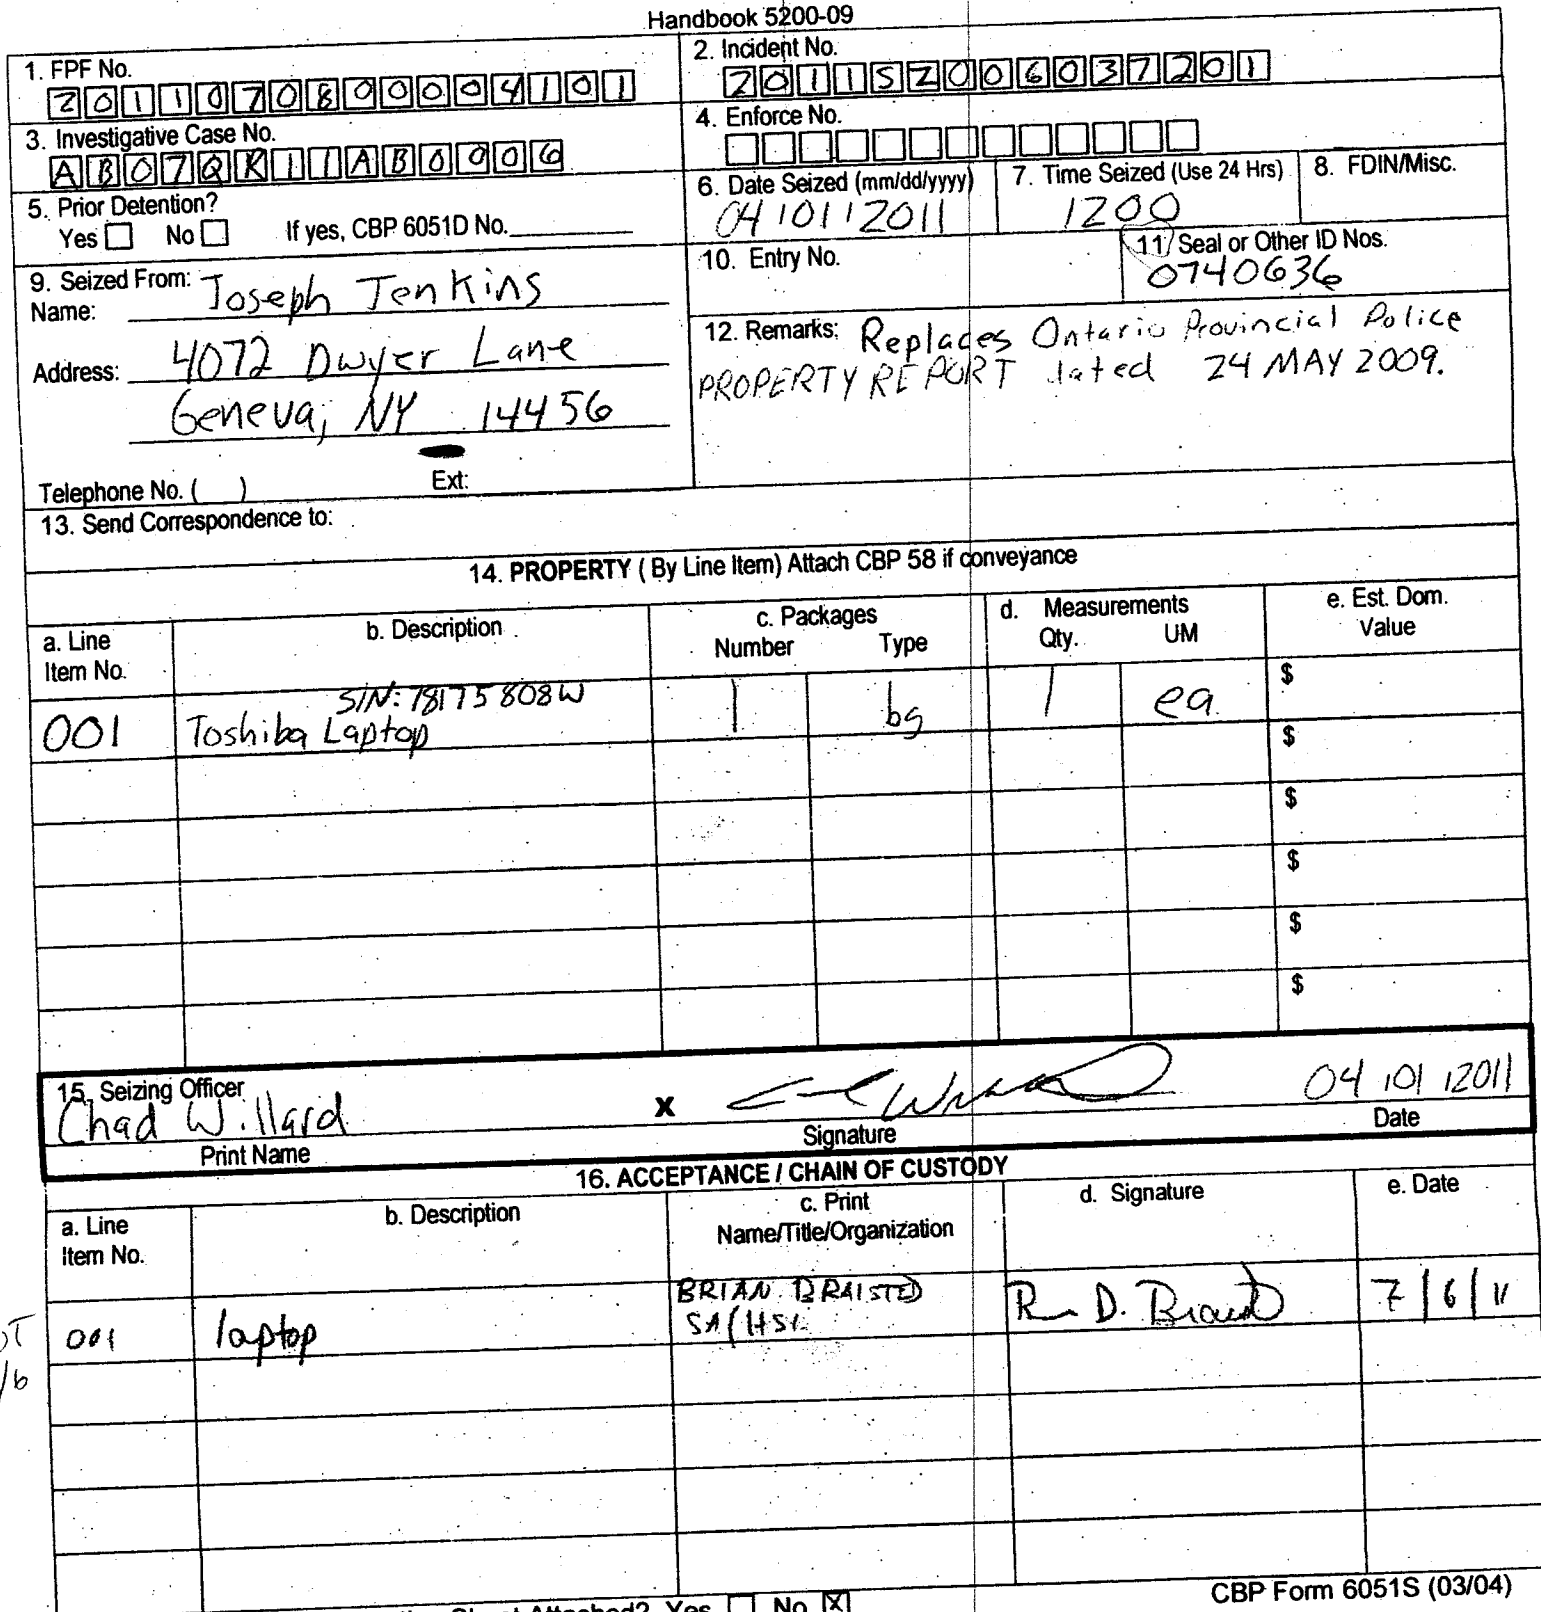 Handbook 5200-09
1. FPF No.
2011070800004101
2. Incident No.
2011SZ006037201
3. Investigative Case No.
AB07QR11AB0006
4. Enforce No.
5. Prior Detention?
Yes No If yes, CBP 6051D No.
6. Date Seized (mm/dd/yyyy)
04/01/2011
7. Time Seized (Use 24 Hrs)
1200
8. FDIN/Misc.
9. Seized From:
Name: Joseph Jenkins
Address: 4072 Dwyer Lane
Geneva, NY 14456
Telephone No. ( ) Ext:
10. Entry No.
11. Seal or Other ID Nos.
0740636
12. Remarks: Replaces Ontario Provincial Police
PROPERTY REPORT dated 24 MAY 2009.
13. Send Correspondence to:
14. PROPERTY ( By Line Item) Attach CBP 58 if conveyance
a. Line
Item No.
b. Description
c. Packages
Number Type
d. Measurements
Qty. UM
e. Est. Dom.
Value
S/N: 78175808W
001 Toshiba Laptop 1 bg 1 ea $
$
$
$
$
$
15. Seizing Officer
Chad Willard X 04/01/2011
Print Name Signature Date
16. ACCEPTANCE / CHAIN OF CUSTODY
a. Line
Item No.
b. Description
c. Print
Name/Title/Organization
d. Signature
e. Date
001 laptop BRIAN BRAISTED
SA/HSI
7/6/11
No
Yes
CBP Form 6051S (03/04)